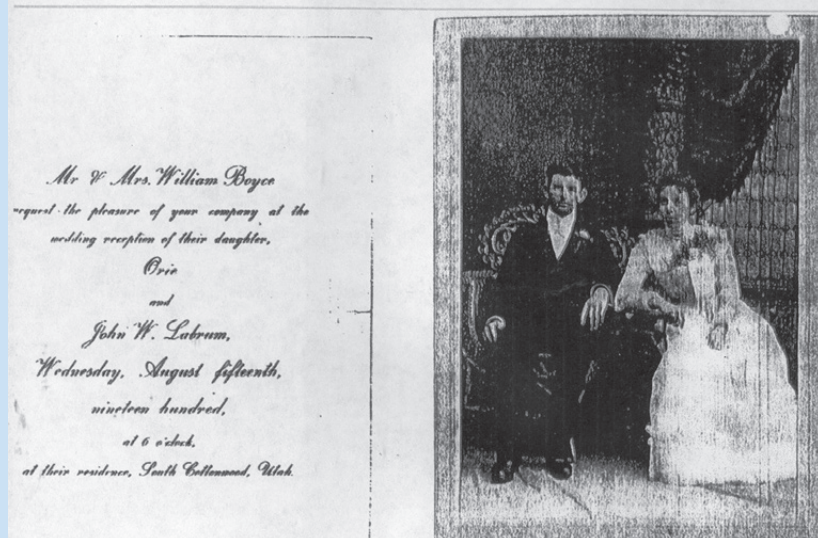 Mr & Mrs. William Boyce
request the pleasure of your company at the
wedding reception of their daughter,
Orie
and
John W. Labrum,
Wednesday, August fifteenth,
nineteen hundred,
at 6 o'clock,
at their residence, South Cottonwood, Utah.